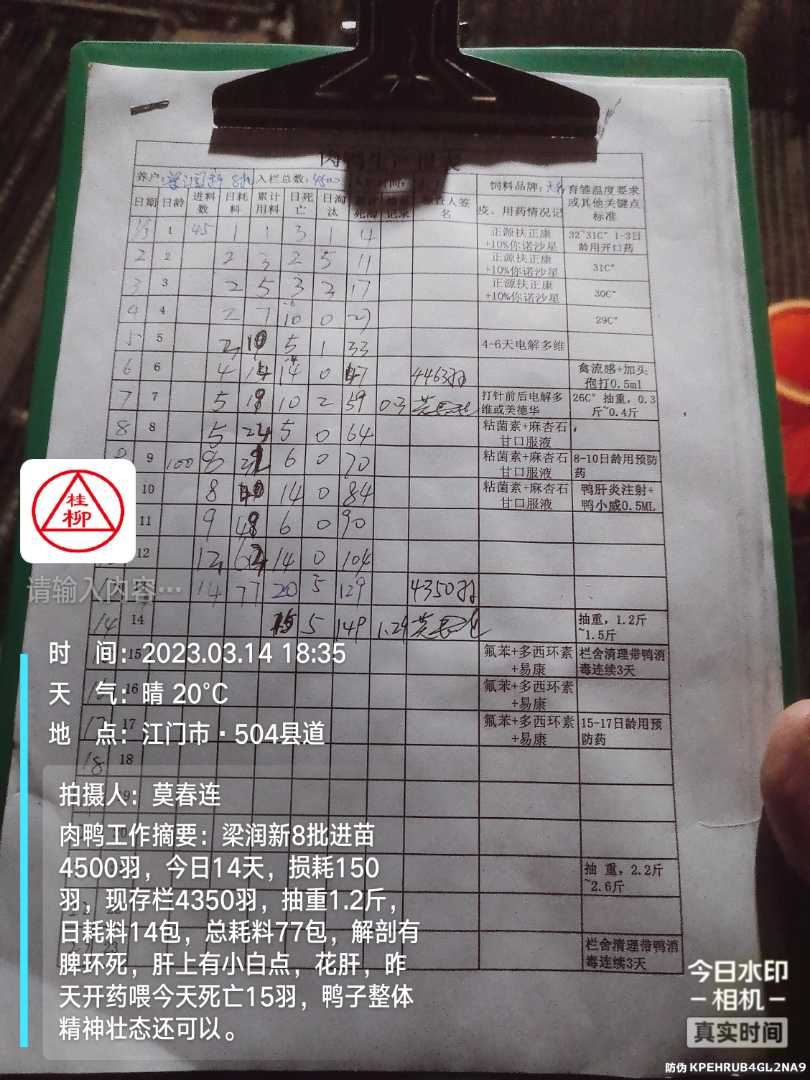 养户: 8批 入栏总数: 4500 饲料品牌: 育雏温度要求或其他关键点标准
日期 日龄 进料数 日耗料 累计用料 日死亡 日淘汰 名 疫、用药情况记
1/3 1 45 1 1 3 1 4 正源扶正康+10%你诺沙星 32~31C° 1-3日龄用开口药
2 2 2 3 2 5 11 正源扶正康+10%你诺沙星 31C°
3 3 2 5 3 3 17 正源扶正康+10%你诺沙星 30C°
4 4 2 7 10 0 27 29C°
5 5 2 5 1 33 4-6天电解多维
6 6 4 14 14 0 47 4463羽 禽流感+加头孢打0.5ml
7 7 5 10 2 59 0.3 打针前后电解多维或芙德华 26C° 抽重，0.3斤~0.4斤
8 8 5 24 5 0 64 粘菌素+麻杏石甘口服液
9 100 6 0 70 粘菌素+麻杏石甘口服液 8-10日龄用预防药
10 8 14 0 84 粘菌素+麻杏石甘口服液 鸭肝炎注射+鸭小威0.5ML
11 9 48 6 0 90
12 12 14 0 104
14 77 20 5 129 4350羽
14 14 15 5 149 1.29 抽重，1.2斤~1.5斤
15 氟苯+多西环素+易康 栏舍清理带鸭消毒连续3天
16 氟苯+多西环素+易康
17 17 氟苯+多西环素+易康 15-17日龄用预防药
18 18
抽 重，2.2斤~2.6斤
23 栏舍清理带鸭消毒连续3天
桂柳
请输入内容…
时 间：2023.03.14 18:35
天 气：晴 20°C
地 点：江门市·504县道
拍摄人：莫春连
肉鸭工作摘要：梁润新8批进苗
4500羽，今日14天，损耗150
羽，现存栏4350羽，抽重1.2斤，
日耗料14包，总耗料77包，解剖有
脾坏死，肝上有小白点，花肝，昨
天开药喂今天死亡15羽，鸭子整体
精神壮态还可以。
今日水印
相机
真实时间
防伪 KPEHRUB4GL2NA9